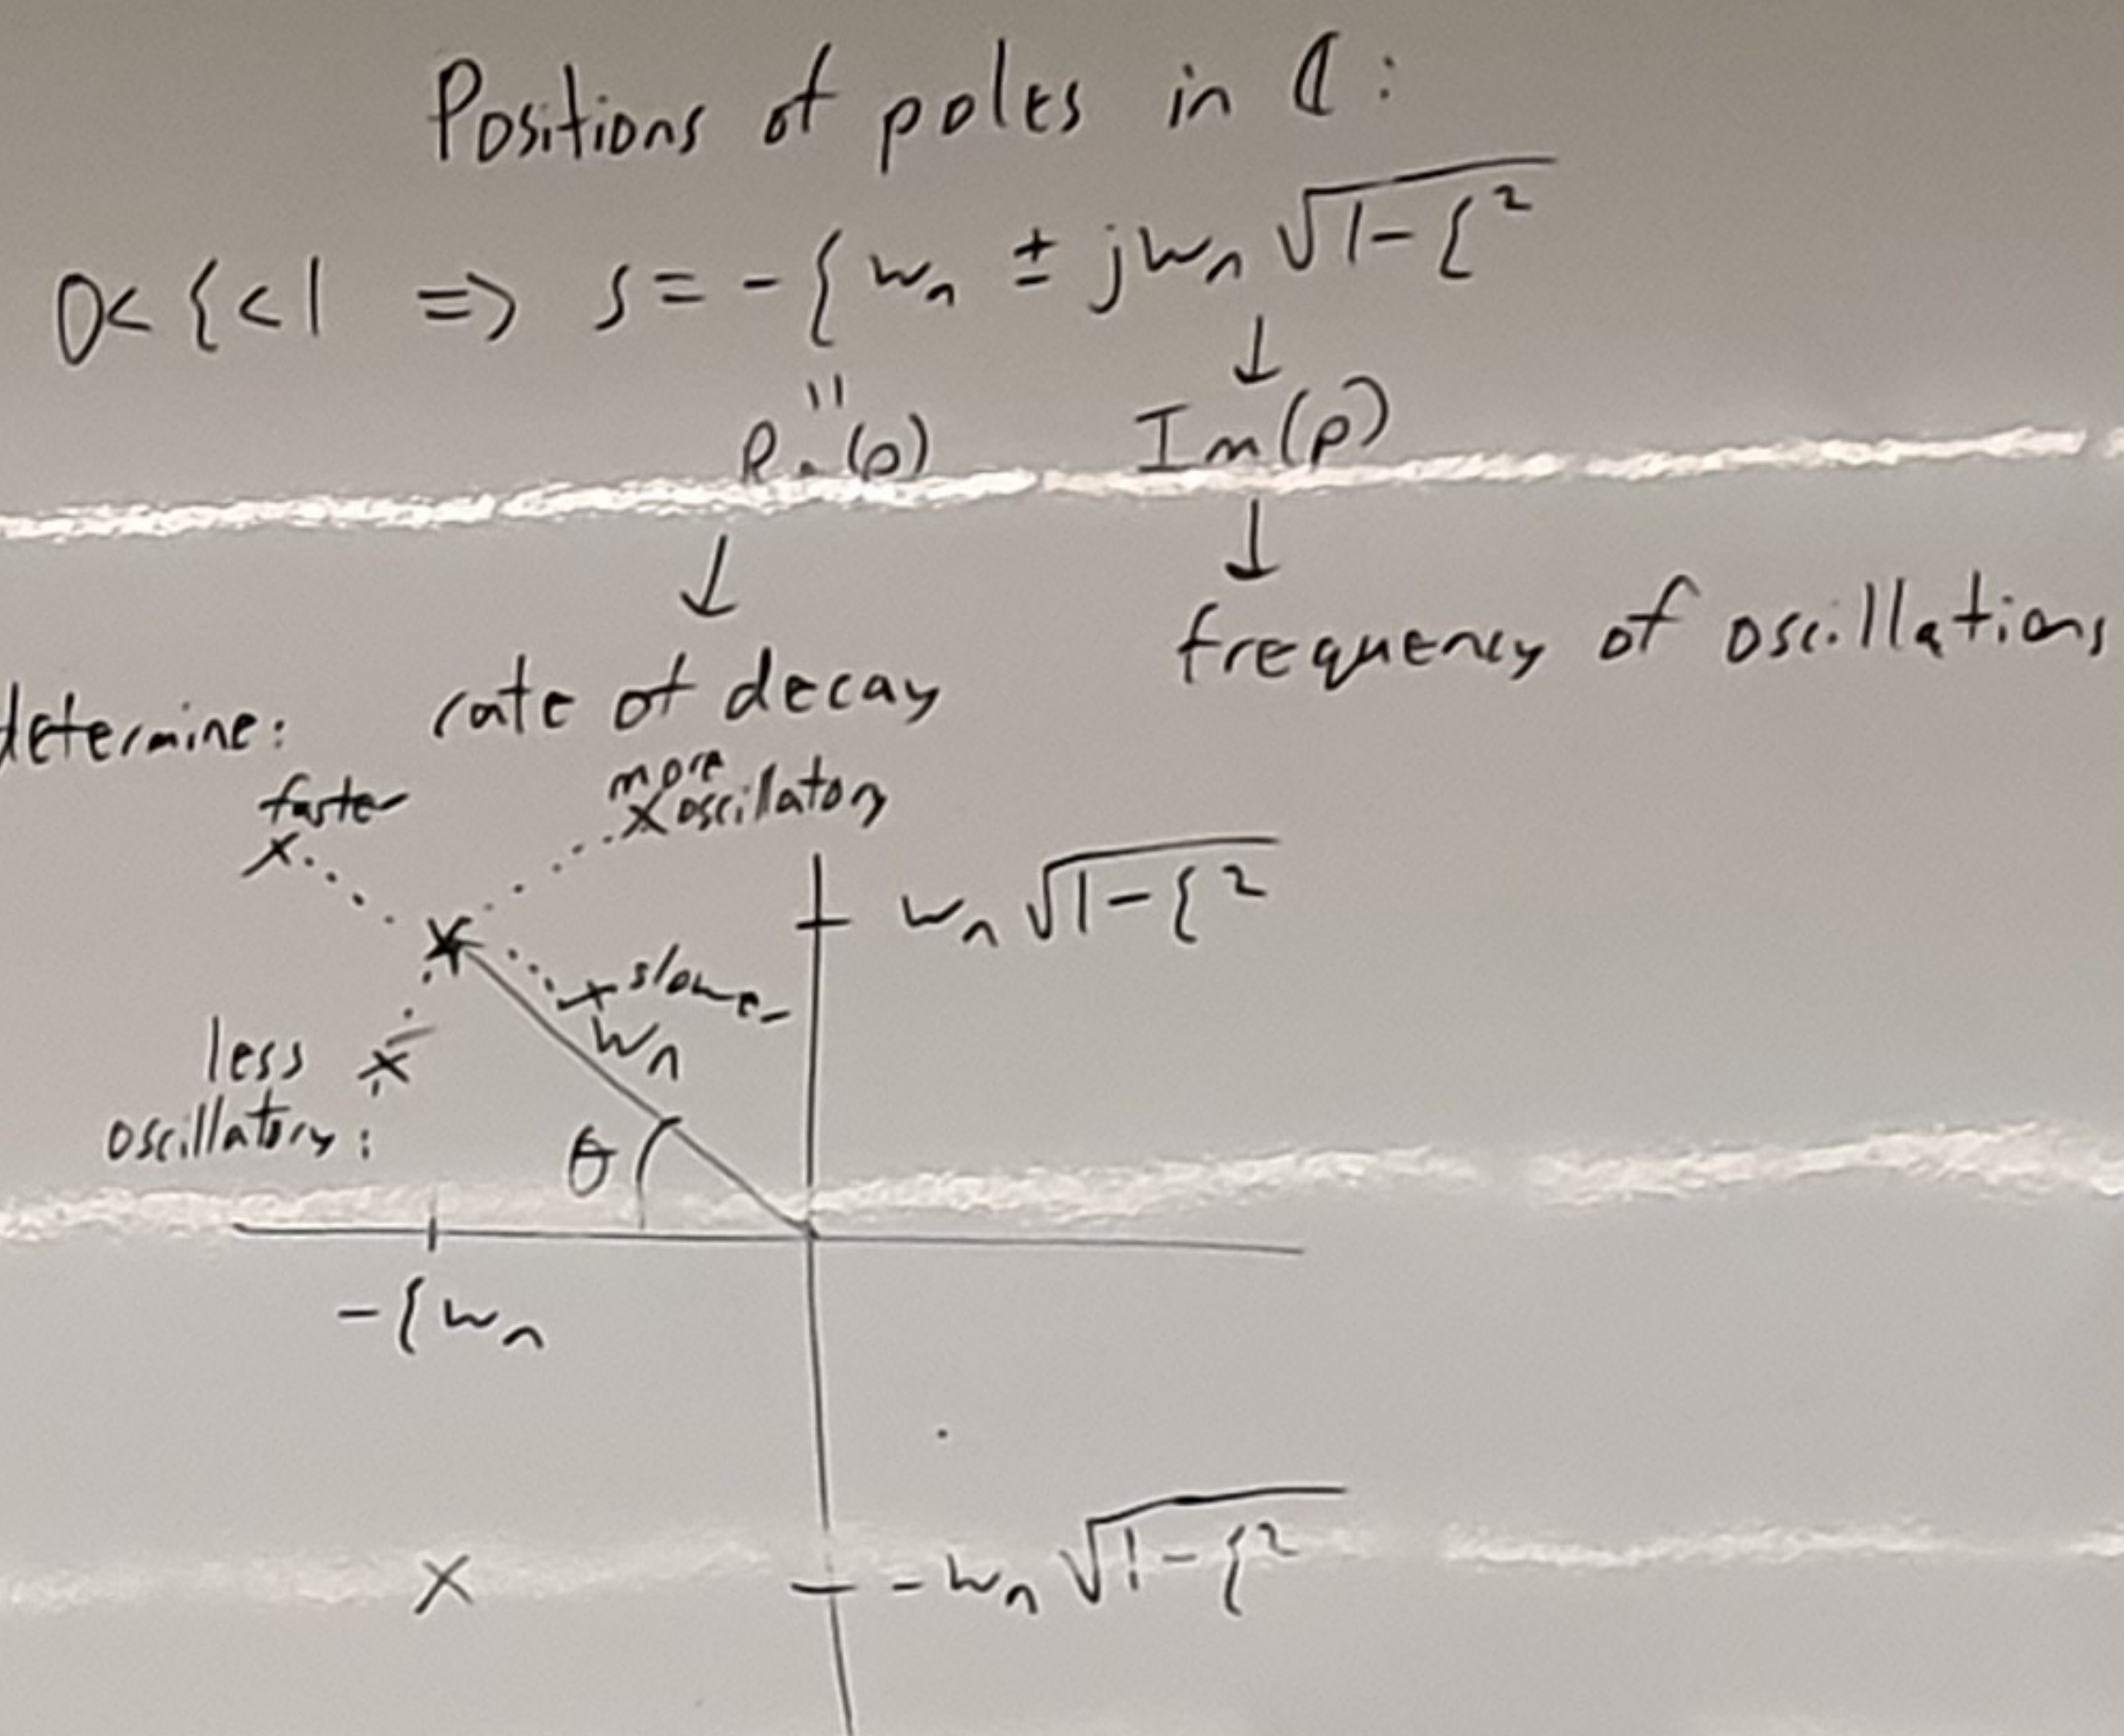 Positions of poles in ℂ:
0<ζ<1 => s = -ζωn ± jωn √1-ζ²
" ↓
Re(p) Im(p)
↓ ↓
determine: rate of decay frequency of oscillations
faster more
x x oscillatory
ωn √1-ζ²
x slower
ωn
less x
oscillatory
θ
-ζωn
x -ωn √1-ζ²